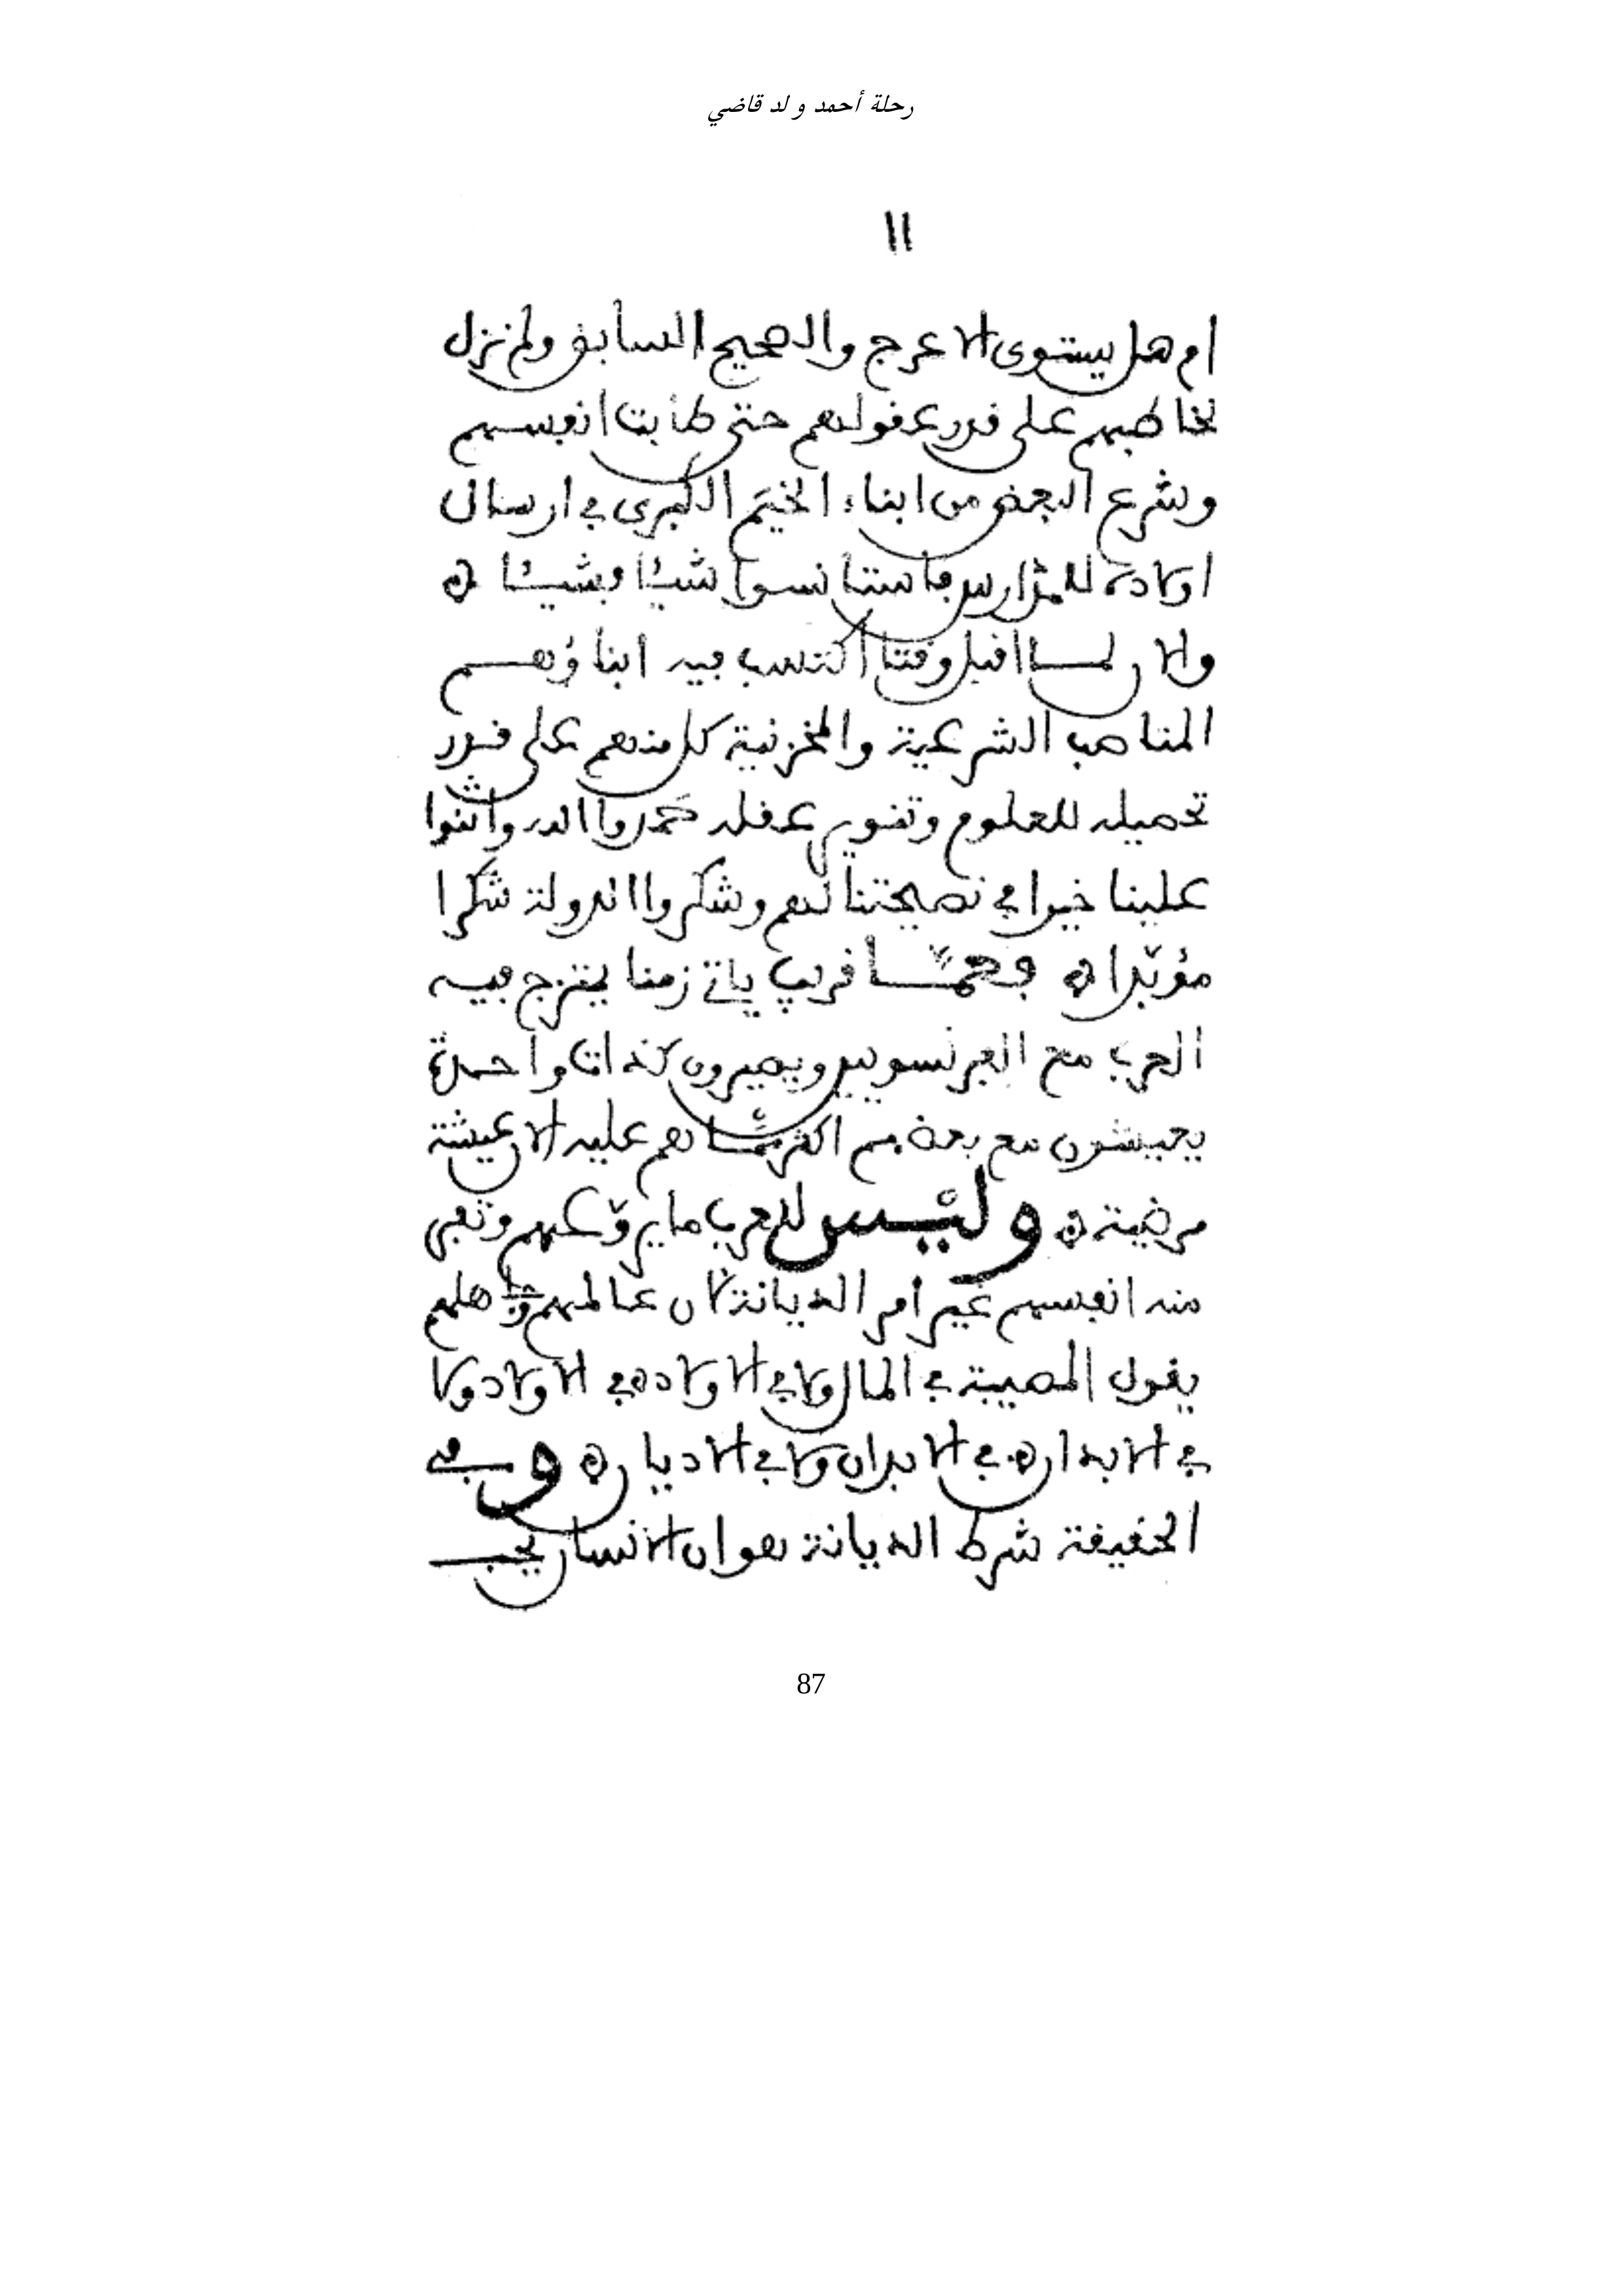 رحلة أحمد ولد قاضي
١١
ام هل يستوى الاعرج والصحيح السابق ولم نزل
نخاطبهم على قدر عقولهم حتى طابت انفسهم
وشرع البعض من ابناء الخيَم الكبرى في ارسال
اولاده للمدارس فاستانسوا شيئا فشيئا ه
والان لما اقبل وقتا اكتسب فيه ابناؤهم
المناصب الشرعية والمخزنية كل منهم على قدر
تحصيله للعلوم وتنوير عقله حمدوا الله واثنوا
علينا خيرا في نصيحتنا لهم وشكروا الدولة شكرا
مؤبّدا ه فحمّا قريب ياتي زمنا يمتزج فيه
العرب مع الفرنسويين ويصيرون كذات واحدة
يعيشون مع بعضهم اكثر مما هم عليه الان عيشة
مرضية ه وليس للعرب ما يروّعهم وتنفر
منه انفسهم غير امر الديانة لان عالمهم وجاهلهم
يقول المصيبة في المال ولا في الاولاد وفي الاولاد ولا
في الابدان وفي الابدان ولا في الاديان ه وفي
الحقيقة شرط الديانة هو ان الانسان يحب
87